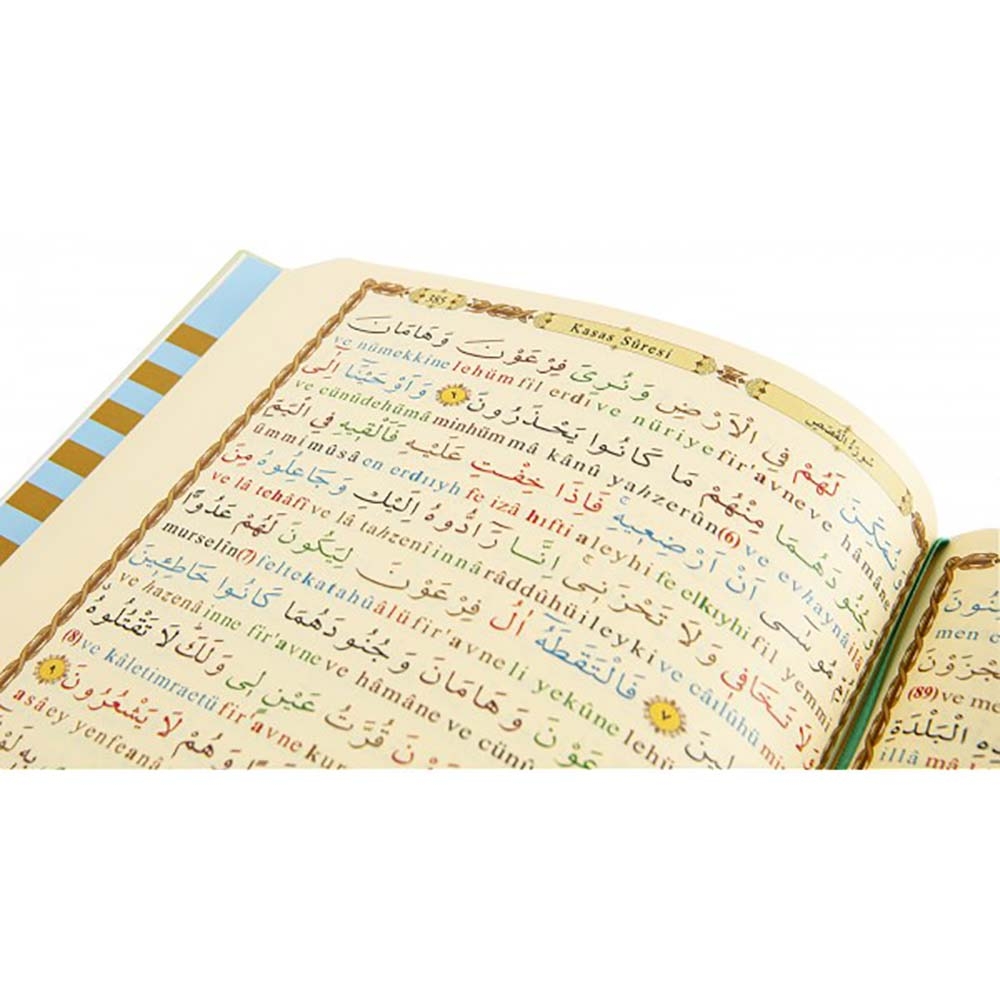 385
Kasas Sûresi
سورة القصص
وَنُمَكِّنَ لَهُمْ فِي الْاَرْضِ وَنُرِيَ فِرْعَوْنَ وَهَامَانَ
ve nümekkine lehüm fil erdi ve nüriye fir'avne ve hâmâne
وَجُنُودَهُمَا مِنْهُمْ مَا كَانُوا يَحْذَرُونَ ٦ وَاَوْحَيْنَٓا اِلٰٓى
ve cünûdehümâ minhüm mâ kânû yahzerûn(6) ve evhaynâ ilâ
اُمِّ مُوسٰٓى اَنْ اَرْضِعِيهِ فَاِذَا خِفْتِ عَلَيْهِ فَاَلْقِيهِ فِي الْيَمِّ
ümmi mûsâ en erdııyh fe izâ hıfti aleyhi fe elkıyhi fil yemmi
وَلَا تَخَافِي وَلَا تَحْزَنِي اِنَّا رَٓادُّوهُ اِلَيْكِ وَجَاعِلُوهُ مِنَ
ve lâ tehâfî ve lâ tahzenî innâ râddûhü ileyki ve câılûhü
٧ فَالْتَقَطَهُٓ اٰلُ فِرْعَوْنَ لِيَكُونَ لَهُمْ عَدُوًّا
murselîn(7) feltekatahû âlü fir'avne li yekûne
وَهَامَانَ وَجُنُودَهُمَا كَانُوا خَاطِـِٔينَ
ve hazenâ inne fir'avne ve hâmâne ve
قُرَّتُ عَيْنٍ لِي وَلَكَ لَا تَقْتُلُوهُ
(8) ve kâletimraetü fir'avne
وَهُمْ لَا يَشْعُرُونَ ٩
asâ ey yenfeanâ
men
(89) ve
الْبَلْدَةِ
illâ mâ